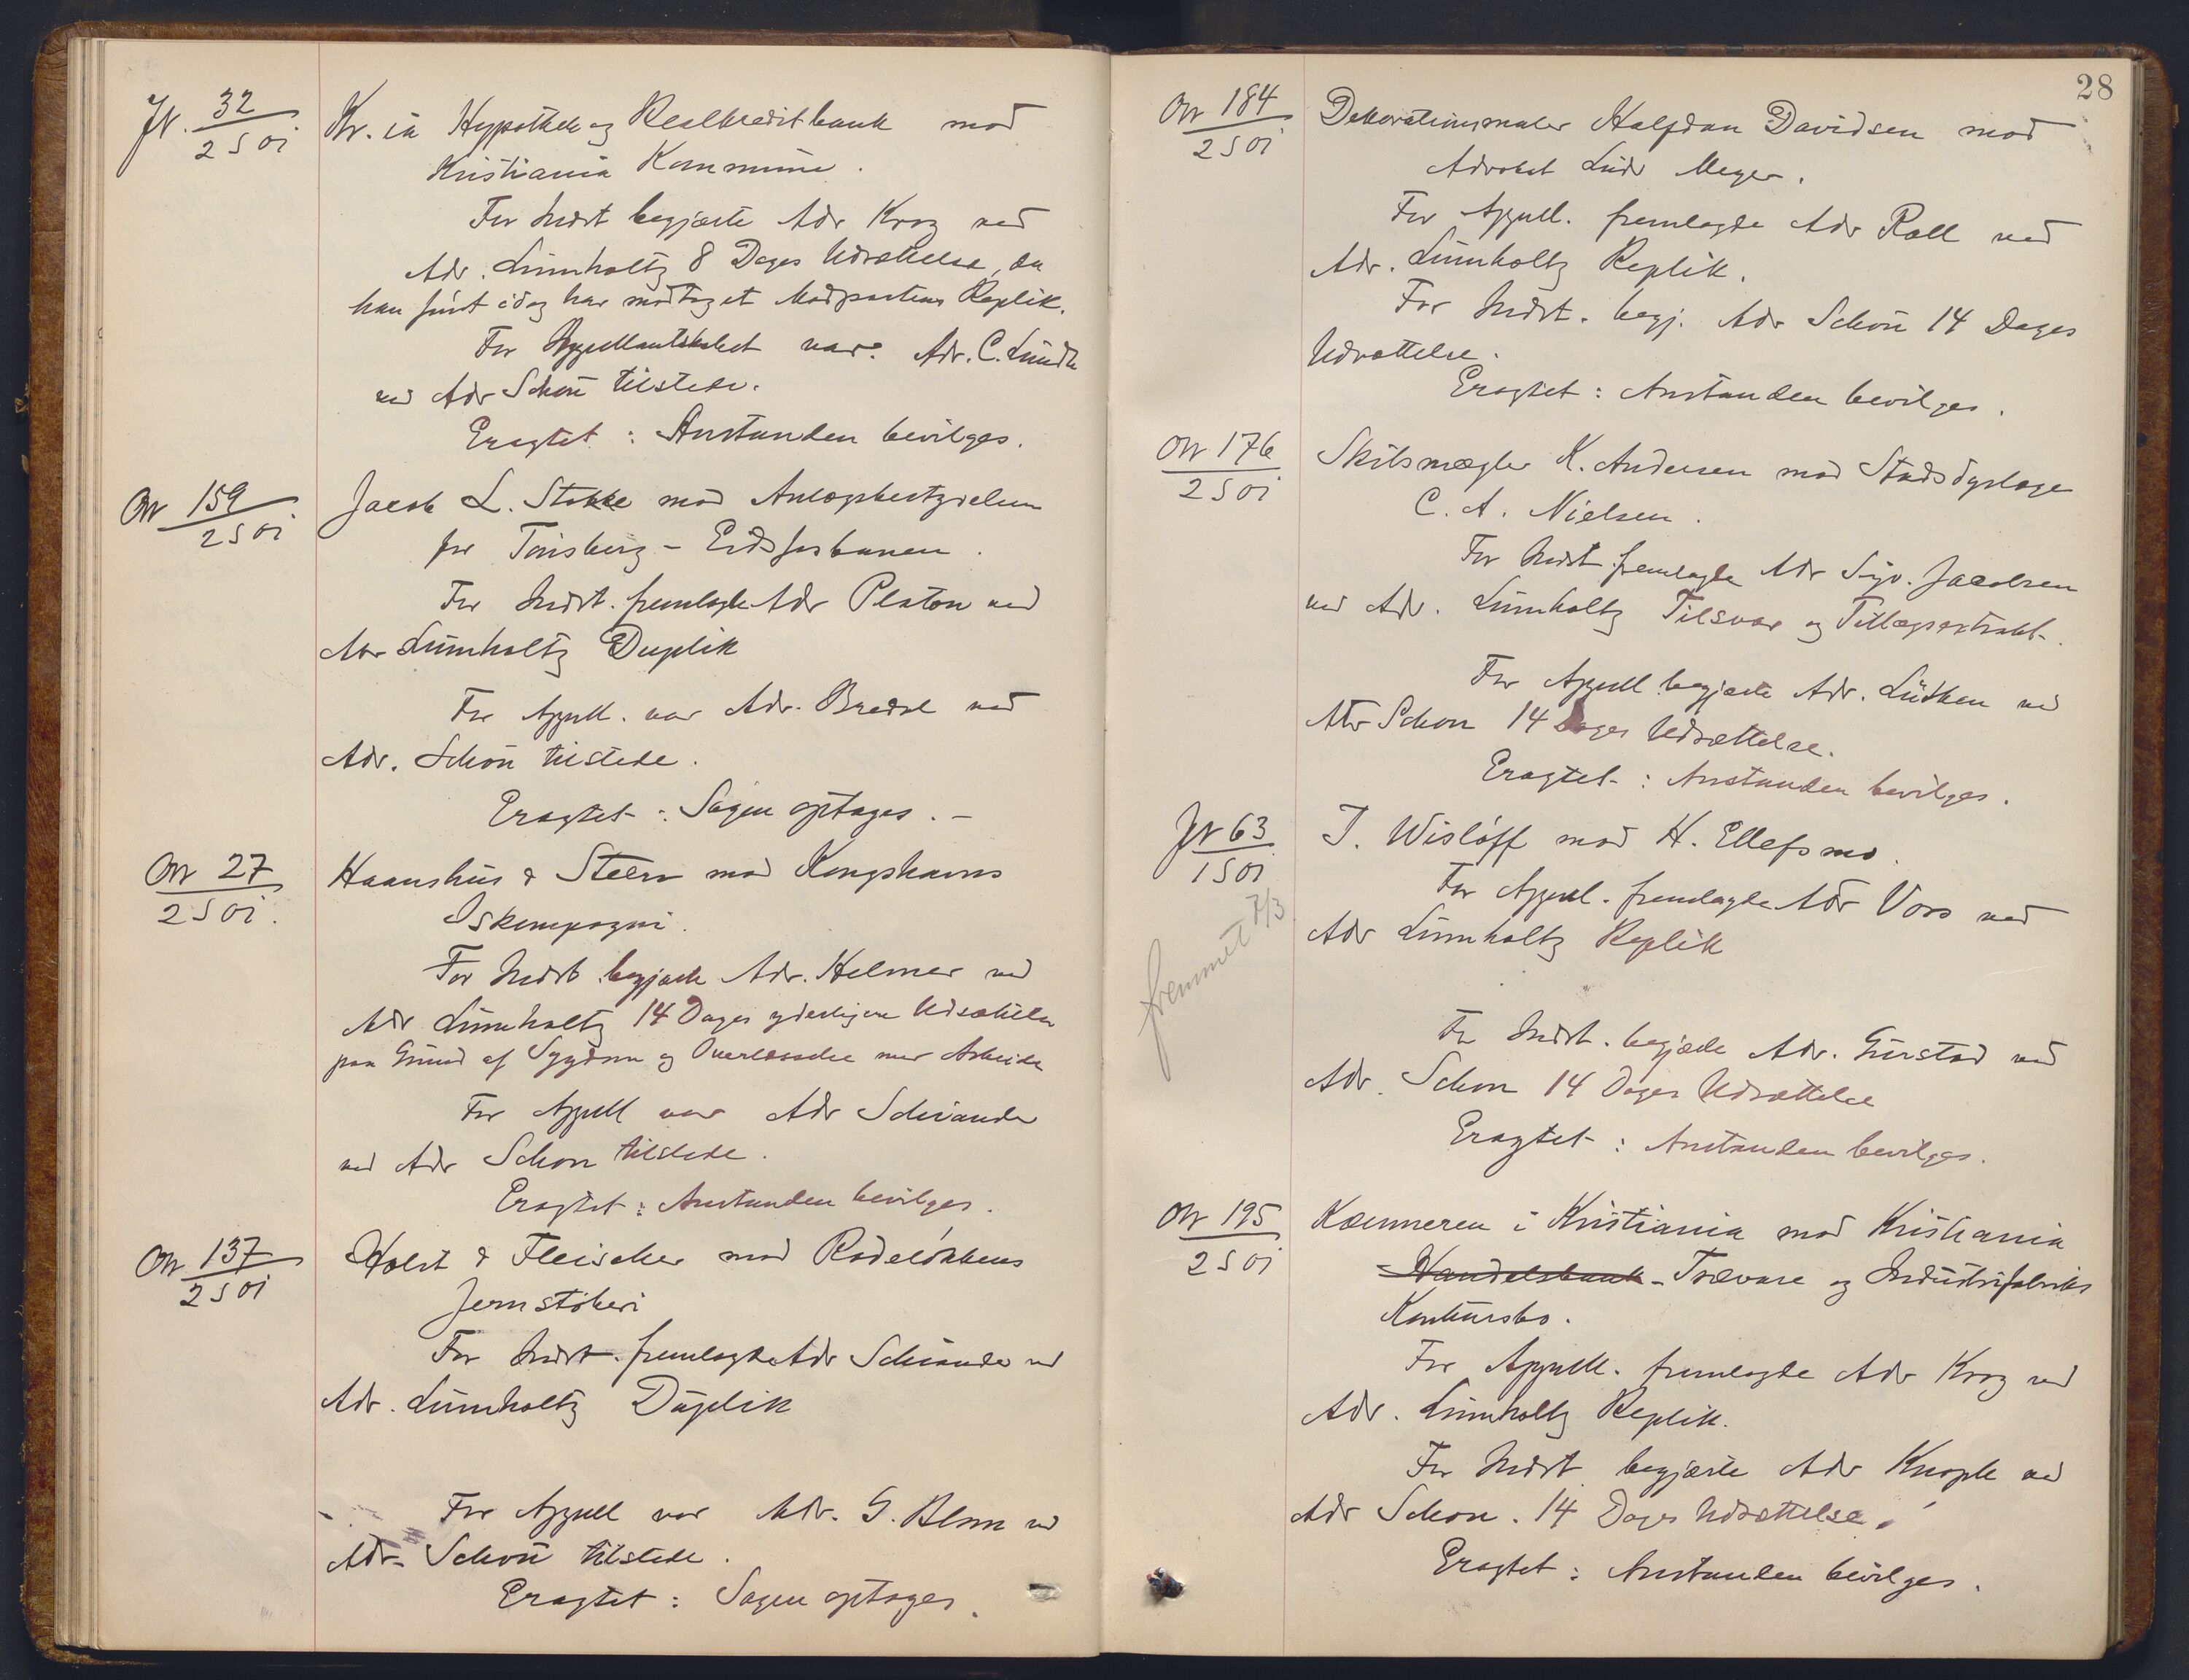 Jv. 32
2 S 01
Kr.ia Hypothek og Realkreditbank mod
Kristiania Kommune.
For Indst begjærte Adv Krog ved
Adv. Lumholtz 8 Dages Udsættelse, da
han først idag har modtaget Modpartens Replik.
For Appellantskabet var Adv. C. Lundh
ved Adv Schøn tilstede.
Eragtet: Anstanden bevilges.
Ov 159
2 S 01
Jacob L. Stokke mod
for Tønsberg - Eidsfosbanen.
For Indst. fremlagde Adv Platou ved
Adv Lumholtz Duplik
For Appell. var Adv. Bredal ved
Adv. Schøn tilstede.
Eragtet: Sagen optages. -
Ov 27
2 S 01.
Haanshus & Steen mod Kongshavns
Iskompagni.
For Indst begjærte Adv. Helmer ved
Adv Lumholtz 14 Dages yderligere Udsættelse
paa Grund af Sygdom og Overlæsselse med Arbeide
For Appell var Adv Schiander
ved Adv Schøn tilstede.
Eragtet: Anstanden bevilges.
Ov 137
2 S 01
Holst & Fleischer mod Rodeløkkens
Jernstøberi
For Indst. fremlagde Adv Schiander ved
Adv. Lumholtz Duplik
For Appell var Adv. G. Blom ved
Adv. Schøn tilstede.
Eragtet: Sagen optages.
28
Ov 184
2 S 01
Dekorationsmaler Halfdan Davidsen mod
Advokat Ludv Meyer.
For Appell. fremlagde Adv Roll ved
Adv. Lumholtz Replik.
For Indst. begj. Adv Schøn 14 Dages
Udsættelse.
Eragtet: Anstanden bevilges.
Ov 176
2 S 01
Skibsmægler K. Andersen mod Stadsdyrlæge
C. A. Nielsen.
For Indst. fremlagde Adv Sigv. Jacobsen
ved Adv. Lumholtz Tilsvar og Tillægsextrakt.
For Appell begjærte Adv. Lütken ved
Adv Schøn 14 Dages Udsættelse.
Eragtet: Anstanden bevilges.
Jv 63
1 S 01
fremmet 7/3
T. Wisløff mod H. Ellefsmo.
For Appell. fremlagde Adv Voss ved
Adv Lumholtz Replik
For Indst. begjærte Adv. Gurstad ved
Adv. Schøn 14 Dages Udsættelse
Eragtet: Anstanden bevilges.
Ov 195
2 S 01
Kæmneren i Kristiania mod Kristiania
Handelsbank - Trævare og Industrifabriks
Konkursbo.
For Appell. fremlagde Adv Krog ved
Adv. Lumholtz Replik.
For Indst begjærte Adv Knoph ved
Adv Schøn. 14 Dages Udsættelse.
Eragtet: Anstanden bevilges.